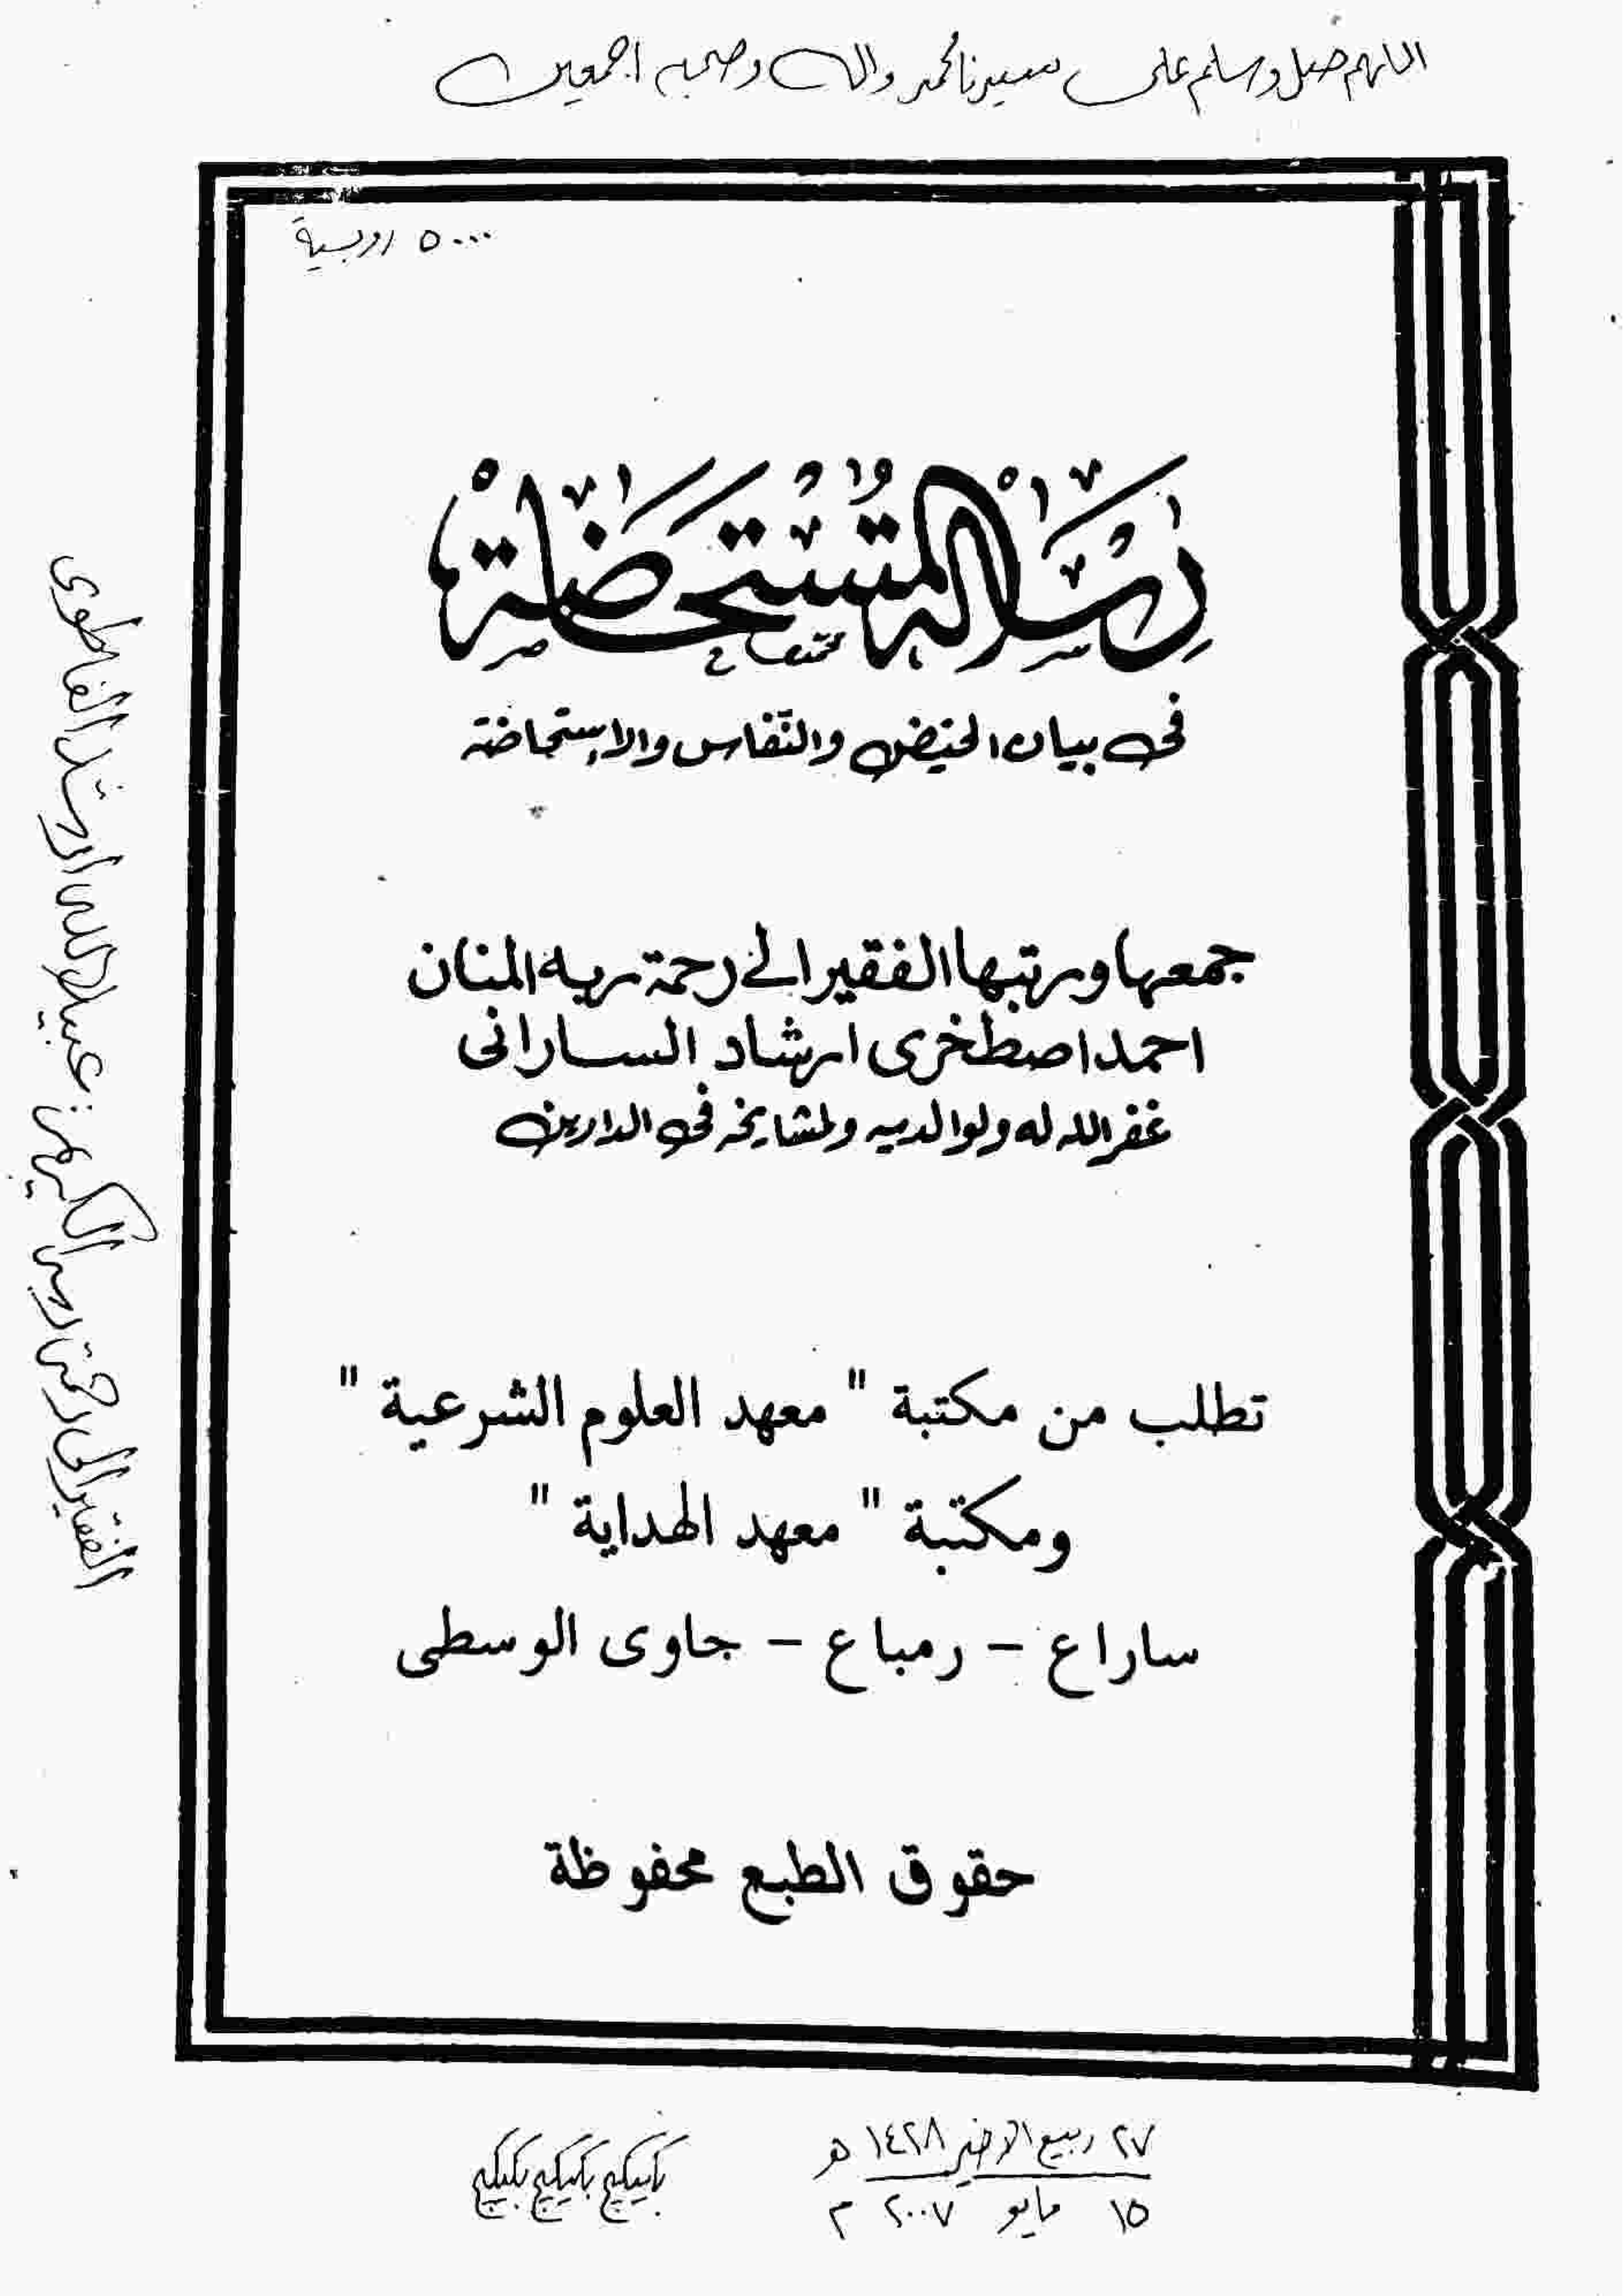 اللهم صل وسلم على سيدنا محمد واله وصحبه اجمعين
٥٠٠٠ روبية
رِسَالَةُ الْمُسْتَحَاضَةْ
فى بيان الحيض والنفاس والاستحاضة
جمعها ورتبها الفقير الى رحمة ربه المنان
احمد اصطخرى ارشاد السارانى
غفر الله له ولوالديه ولمشايخه فى الدارين
تطلب من مكتبة " معهد العلوم الشرعية "
ومكتبة " معهد الهداية "
ساراع – رمباع – جاوى الوسطى
حقوق الطبع محفوظة
الفقير الى رحمة ربه الكريم : عبيد الله ارشد الفاطوى
٢٧ ربيع الاخير ١٤٢٨ هـ
١٥ مايو ٢٠٠٧ م